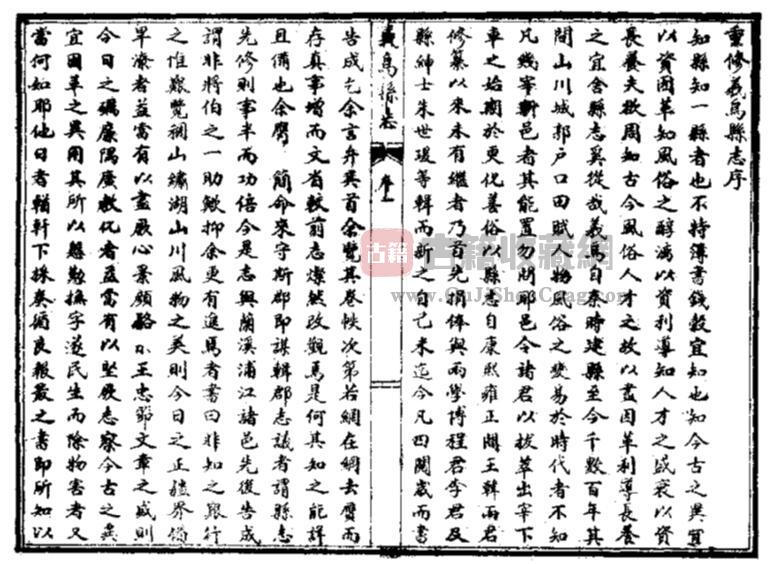 重修義烏縣志序
知縣知一縣者也不特簿書錢穀宜知也知今古之異宜
以資因革知風俗之醇漓以資利導知人才之盛衰以資
長養夫欲周知古今風俗人才之故以盡因革利導長養
之宜舍縣志奚從哉義烏自秦時建縣至今千數百年其
間山川城郭戶口田賦人物風俗之變易於時代者不知
凡幾宰斯邑者其能置勿問耶邑令諸君以拔萃出宰下
車之始期於更化善俗以縣志自康熙雍正間王韓兩君
修纂以來未有繼者乃首先捐俸與兩學博程君李君及
縣紳士朱世瑗等輯而新之自己未迄今凡四閱歲而書
義烏縣志
序
告成乞余言弁其首余覽其卷帙次第若網在綱去贗而
存真事增而文省較前志燦然改觀焉是何其知之能詳
且備也余膺 簡命來守斯郡即謀輯郡志議者謂縣志
先修則事半而功倍今是志與蘭溪浦江諸邑先後告成
謂非將伯之一助歟抑余更有進焉者書曰非知之艱行
之惟艱覽稠山繡湖山川風物之美則今日之正疆界備
旱潦者益當有以盡厥心景顏駱宗王忠節文章之盛則
今日之礪廉隅廣教化者益當有以堅厥志察今古之異
宜因革之異用其所以懇勤撫字遂民生而除物害者又
當何如耶他日者輶軒下採奏循良報最之書即所知以
古籍
古籍收藏網
www.GuJiShouCang.com